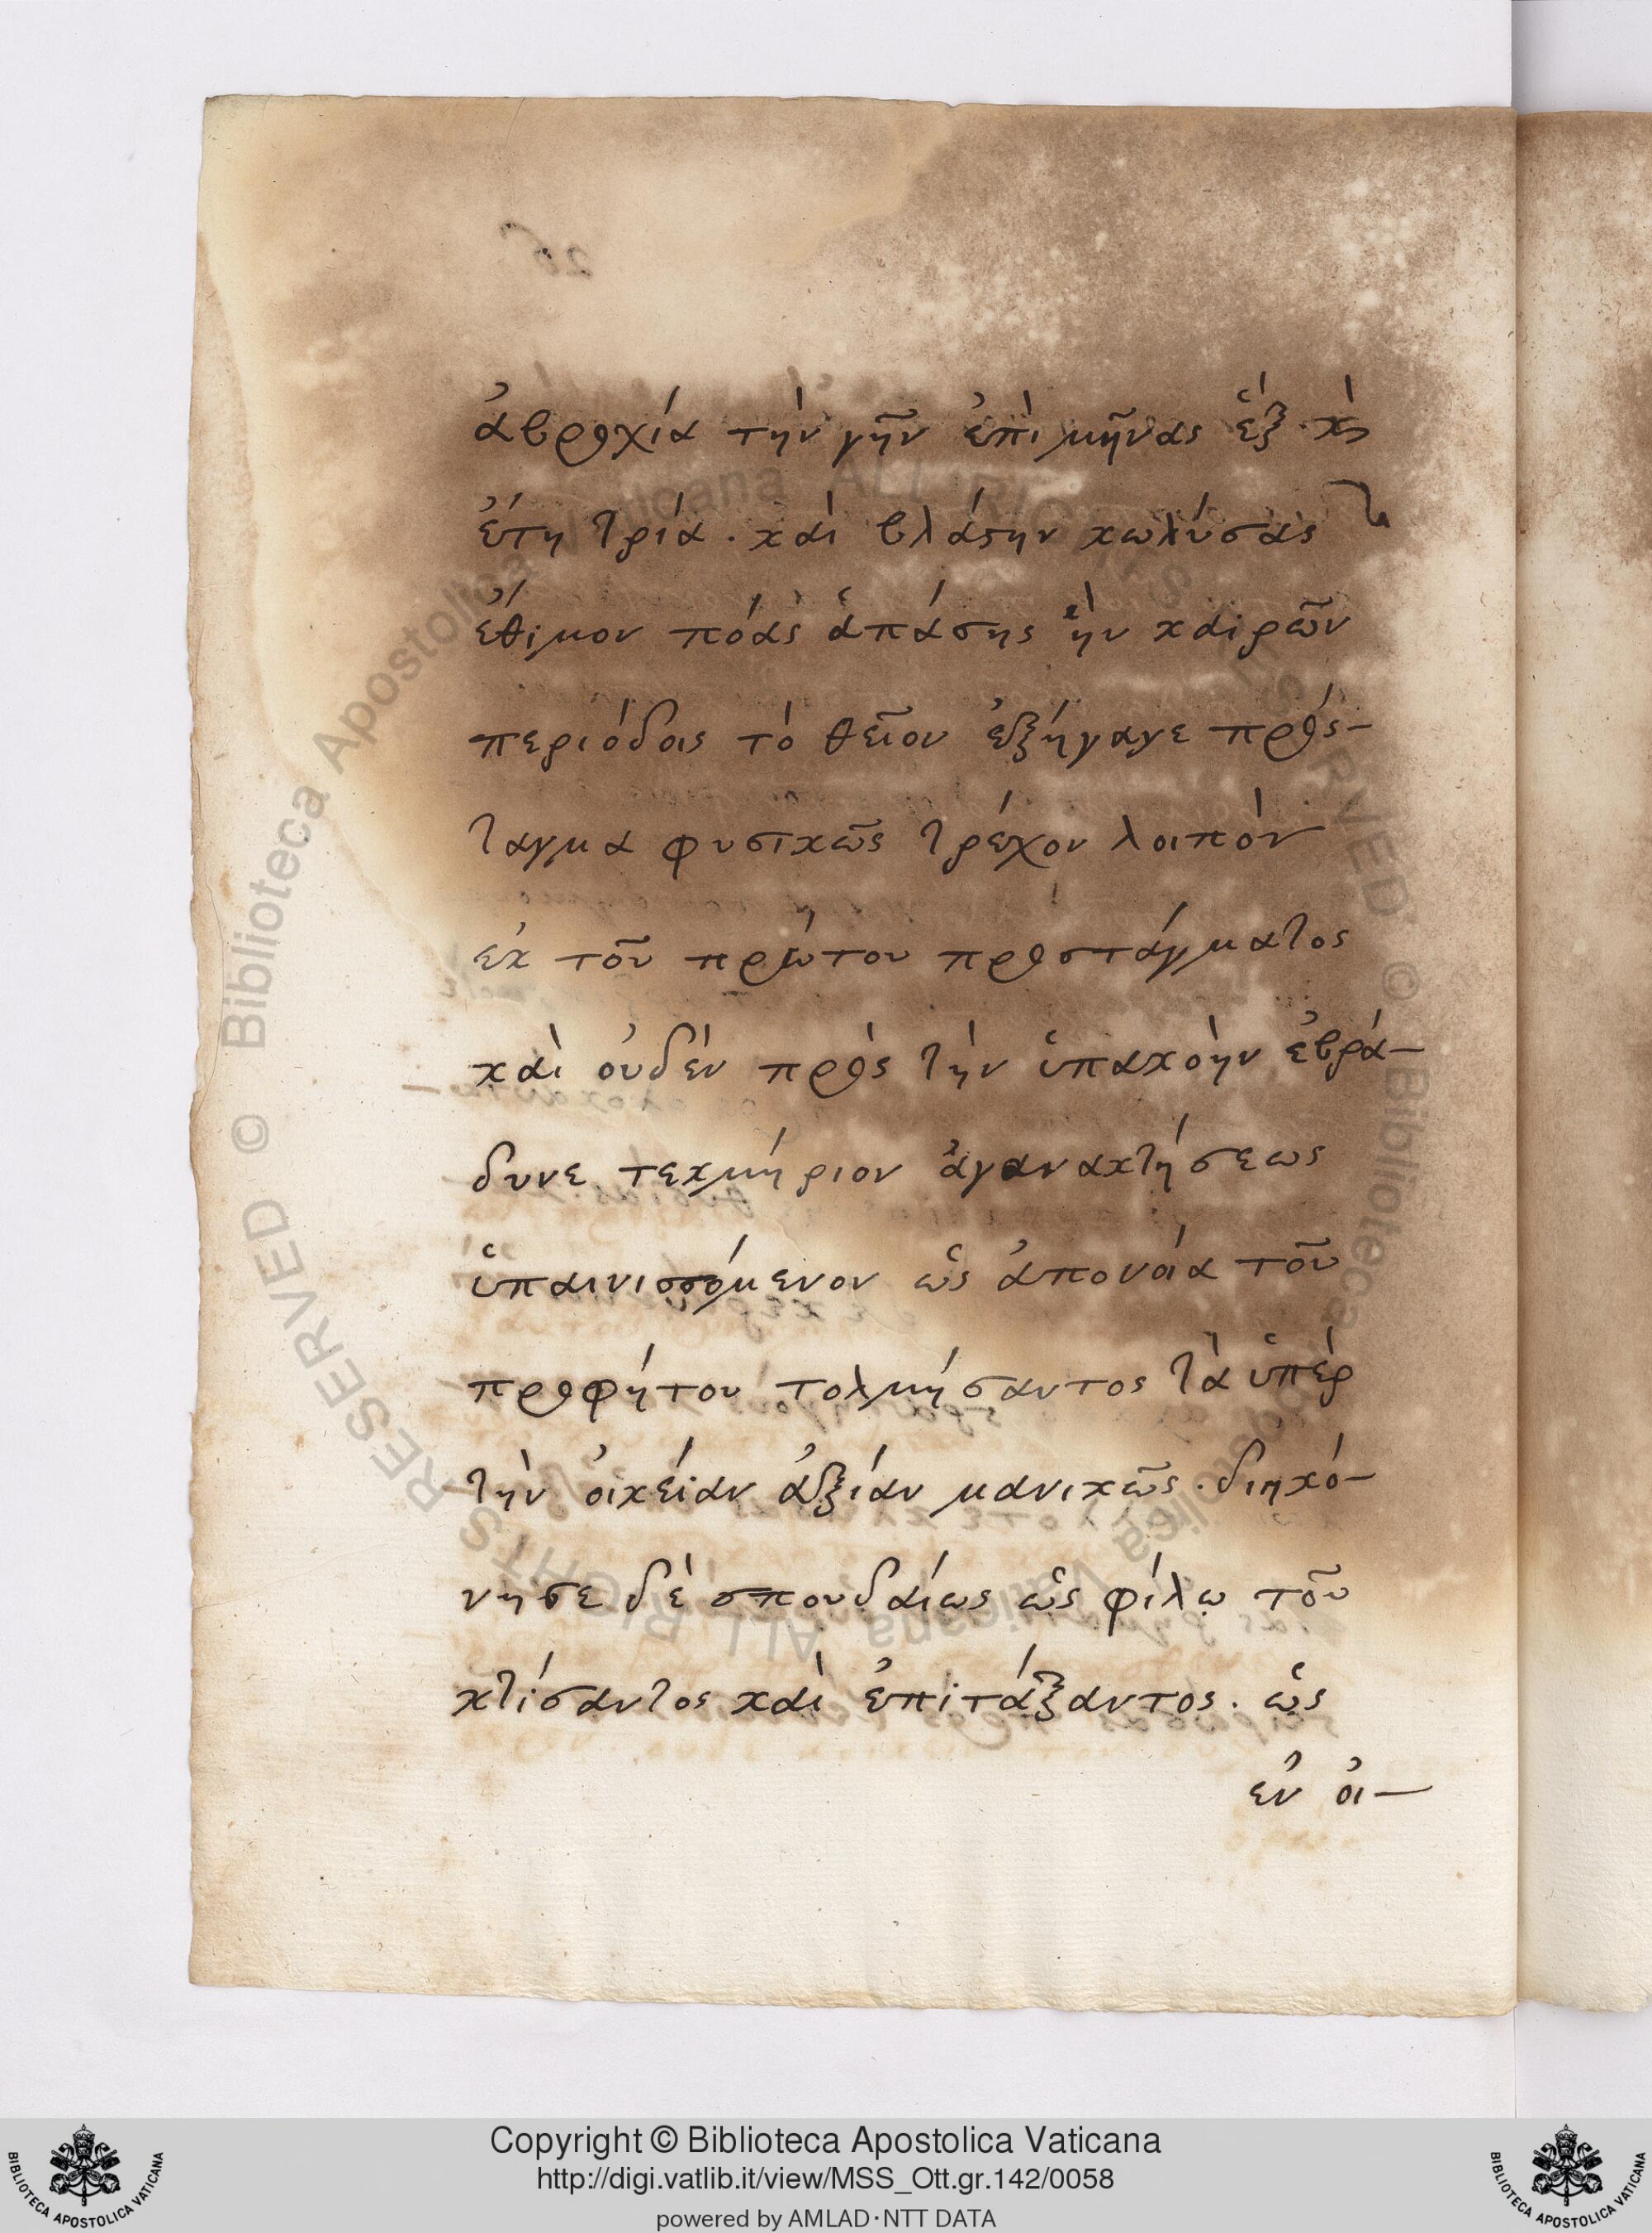 ἀβροχία τὴν γῆν ἐπὶ μῆνας ἓξ · κ̀
ἔτη τρία · καὶ βλάϛην κωλύσας
ἔθιμον πόας ἁπάσης ἣν καιρῶν
περιόδοις τὸ θεῖον ἐξήγαγε πρός-
ταγμα φυσικῶς τρέχον λοιπὸν
ἐκ τοῦ πρώτου προστάγματος
καὶ οὐδὲν πρὸς τὴν ὑπακοὴν ἐβρά-
δυνε τεκμήριον ἀγανακτήσεως
ὑπαινισσόμενον ὡς ἀπονοία τοῦ
προφήτου τολμήσαντος τὰ ὑπὲρ
τὴν οἰκείαν ἀξίαν μανικῶς · διηκό-
νησε δὲ σπουδαίως ὡς φίλω τοῦ
κτίσαντος καὶ ἐπιτάξαντος · ὡς
ἐν οἰ-
Copyright © Biblioteca Apostolica Vaticana
http://digi.vatlib.it/view/MSS_Ott.gr.142/0058
powered by AMLAD·NTT DATA
BIBLIOTECA APOSTOLICA VATICANA
BIBLIOTECA APOSTOLICA VATICANA
© Biblioteca Apostolica Vaticana ALL RIGHTS RESERVED © Biblioteca Apostolica Vaticana ALL RIGHTS RESERVED